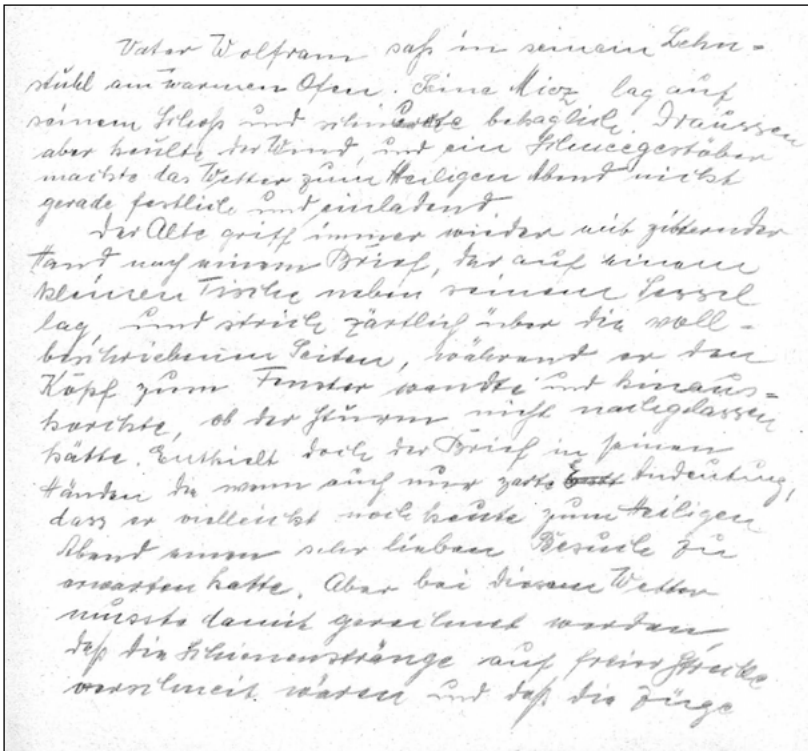 Vater Wolfram saß in seinem Lehn=
stuhl am warmen Ofen. Seine Miez lag auf
seinem Schoß und schnurrte behaglich. Draussen
aber heulte der Wind, und ein Schneegestöber
machte das Wetter zum Heiligen Abend nicht
gerade festlich und einladend
Der Alte griff immer wieder mit zitternder
Hand nach einem Brief, der auf einem
kleinen Tische neben seinem Sessel
lag, und strich zärtlich über die voll=
beschriebenen Seiten, während er den
Kopf zum Fenster wandte und hinaus=
horchte, ob der Sturm nicht nachgelassen
hätte. Enthielt doch der Brief in seinen
Händen die wenn auch nur zarte Andeutung,
dass er vielleicht noch heute zum Heiligen
Abend einen sehr lieben Besuch zu
erwarten hatte. Aber bei diesem Wetter
musste damit gerechnet werden,
daß die Schienenstränge auf freier Strecke
verschneit wären und daß die Züge